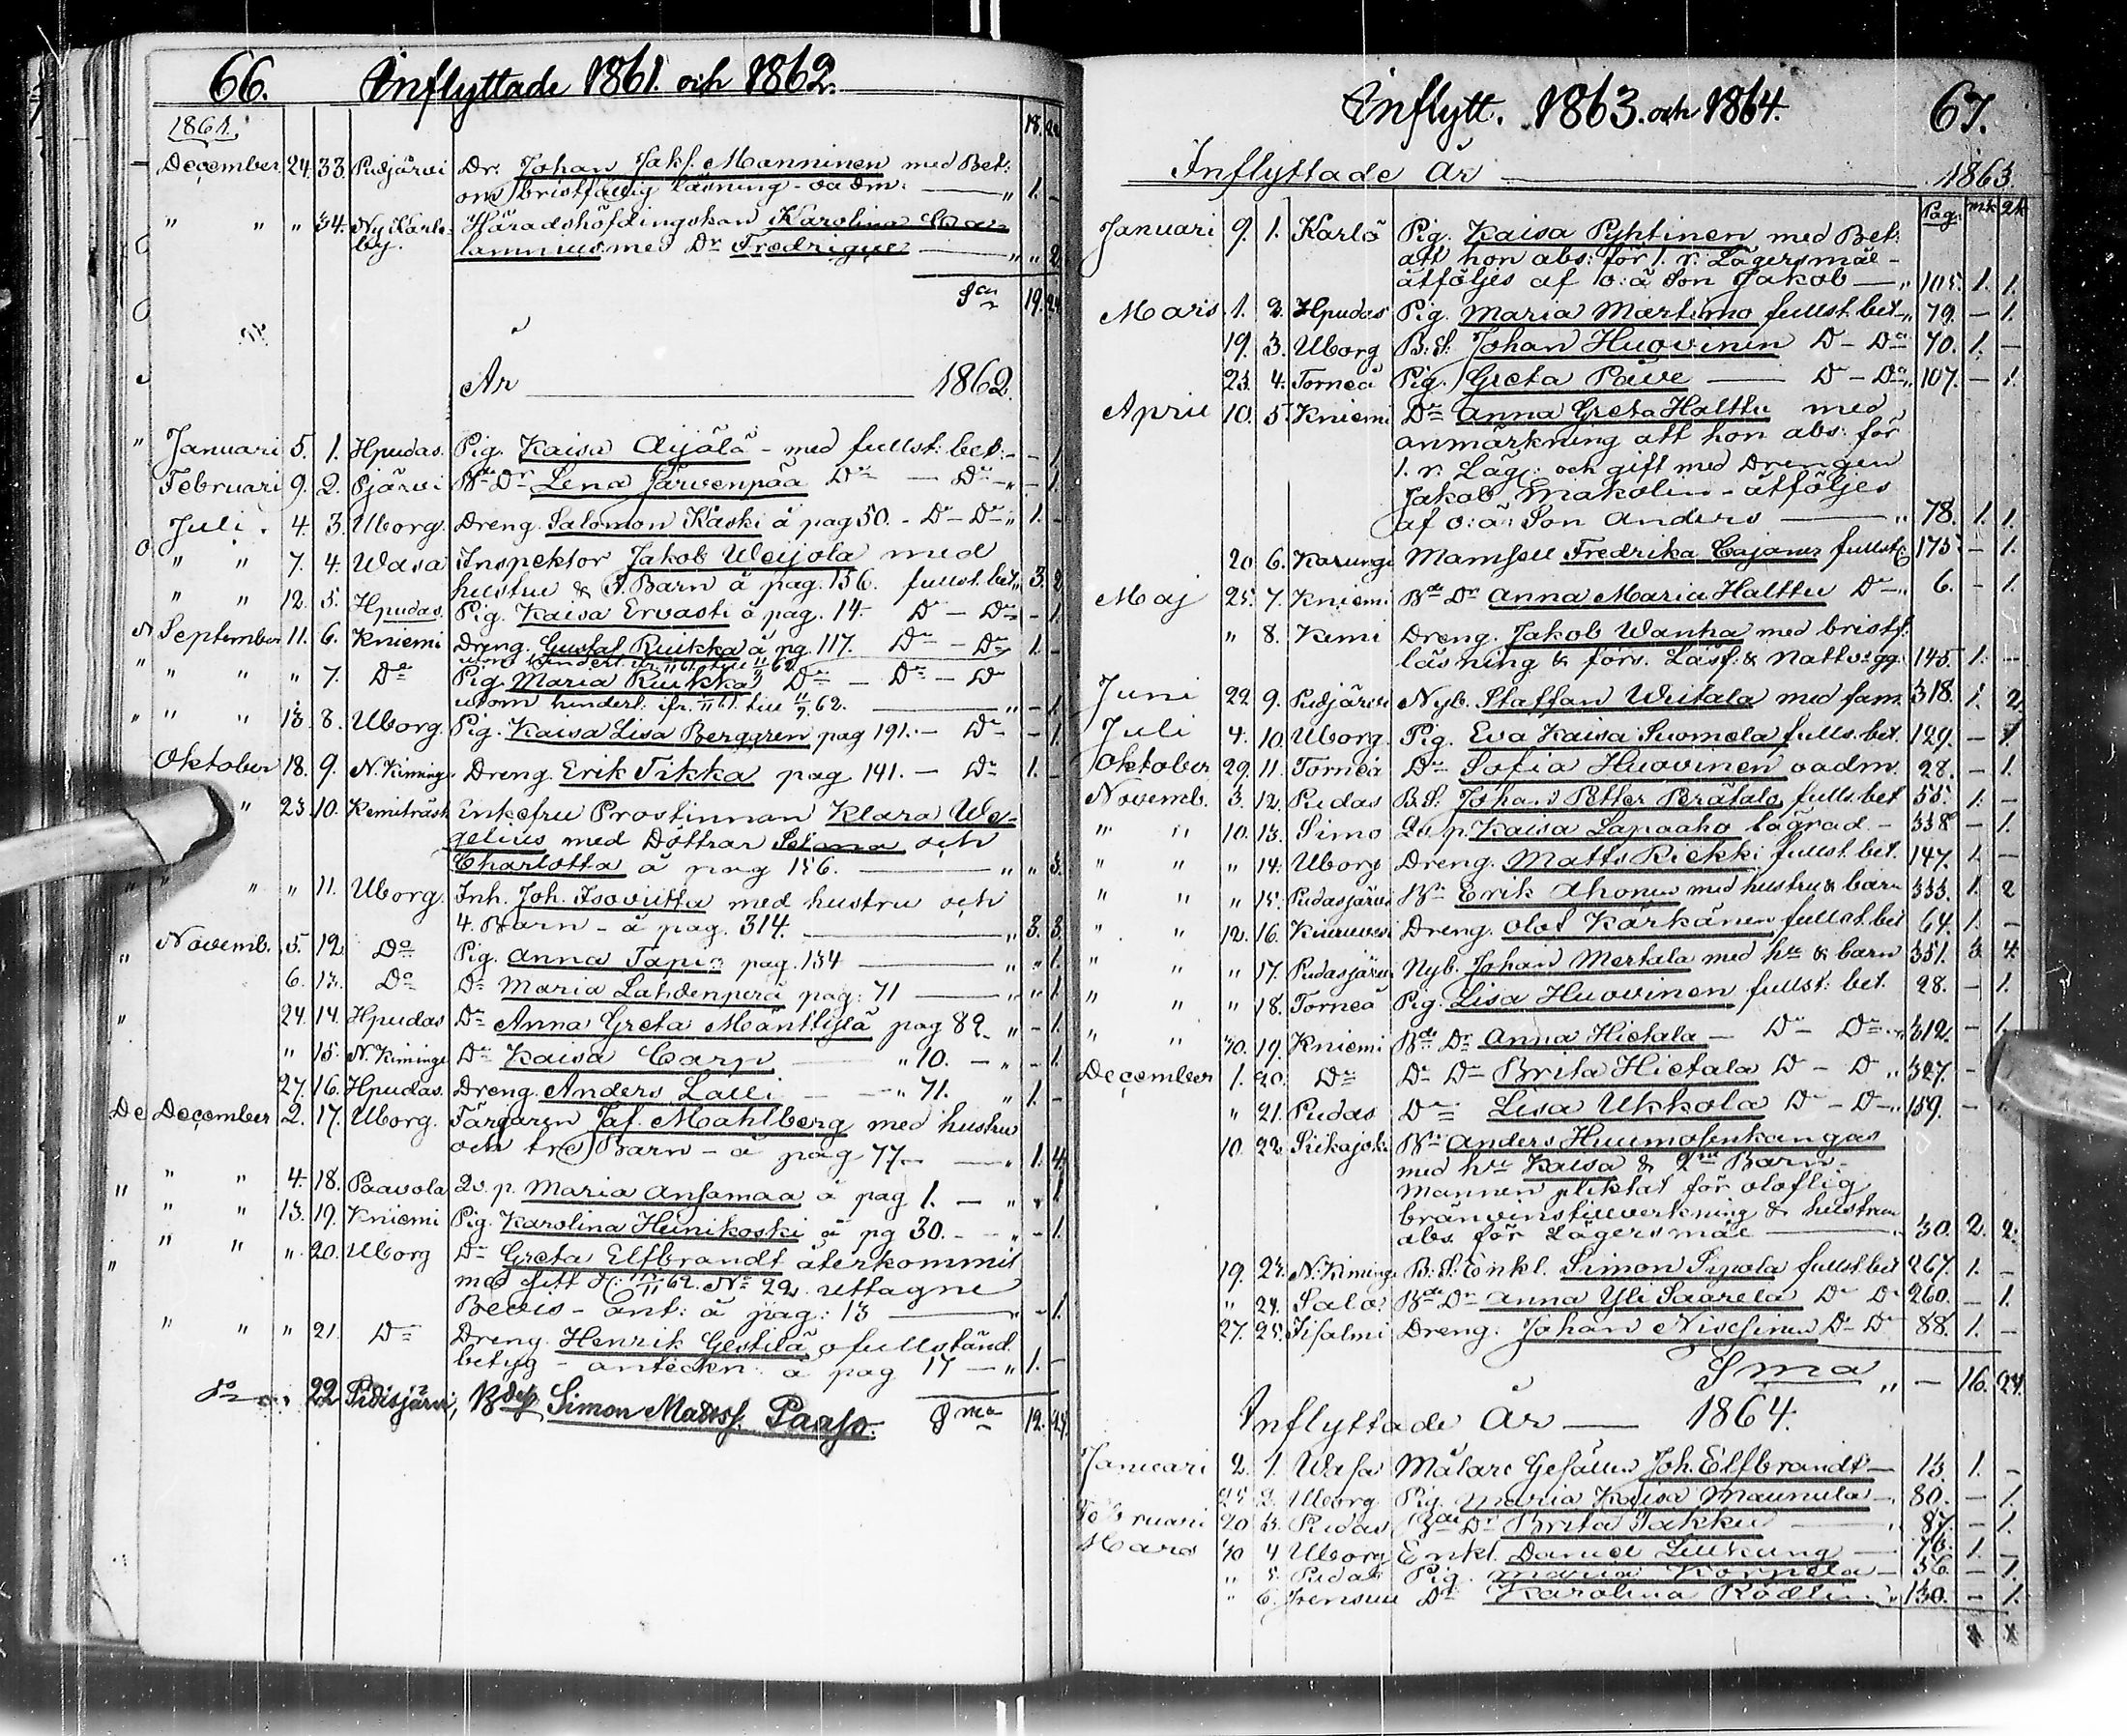 66. Inflyttade 1861. och 1862.
1861.
December 24. 33. Pudjärvi Dr. Johan Jak. Manninen med Bet:
om bristfällig läsning - oadm. — " 1. -
" " " 34. Ny Karle- Häradshöfdingskan Karolina
by. lamnius med Dr Fredrique — " " 2.
Sa 19. 24
År — 1862.
" Januari 5. 1. Hpudas. Pig. Kaisa Äijälä - med fullst: bet: - - 1
Februari 9. 2. Pjärvi Bde Dr Lena Järvenpää Do — Do " - 1.
Juli. 4. 3. Uborg. Dreng. Salomon Kaski å pag 50. - Do - Do " 1. -
" " 7. 4. Wasa Inspektor Jakob Weijola med
hustru & Barn å pag. 156. fullst. bet " 3. 2
" " 12. 5. Hpudas. Pig. Kaisa Ervasti å pag. 14. D - Do - 1.
September 11. 6. Kniemi Dreng. Gustaf Ruikka å pg. 117. Do - Do 1. -
" " " 7. Do Pig. Maria Ruikka Do - Do - Do
utom hinderl. ifr. 61. till 62. — " - 1.
" " 13. 8. Uborg. Pig. Kaisa Lisa Berggren pag 191. - Do - 1.
Oktober 18. 9. N. Kiminge Dreng. Erik Tikka pag 141. - Do 1. -
" 23 10. Kemiträsk Enkefru Prostinnan Klara We-
gelius med Döttrar Selma och
Charlotta å pag 156. — " " 3.
" " " 11. Uborg. Inh. Joh. Isoviitta med hustru och
4. Barn - å pag. 314. — " 3. 3.
" Novemb. 5. 12. Do Pig. Anna Tapio pag. 134 — " " 1.
6. 13. Do Do Maria Lahdenperä pag: 71 — " " 1
" 24. 14. Hpudas Do Anna Greta Mänttylä pag 82. " - 1.
" 15. N. Kiminge Do Kaisa Carp " 10. - " - 1.
27. 16. Hpudas. Dreng. Anders Lalli — " 71. " 1. -
De December 2. 17. Uborg. Färgaren Jaf. Mahlberg med hustru
och tre Barn - å pag 77. — " 1. 4
" " 4. 18. Paavola Qv. p. Maria Ansamaa å pag 1. — " " 1
" " 13. 19. Kniemi Pig. Karolina Heinikoski å pg 30. - " - 1.
" " " 20. Uborg Do Greta Elfbrandt återkommit
med sitt d: 62. No 22. uttagne
Bevis - ant: å pag: 13 — " - 1.
" " " 21. Do Dreng. Henrik Gestilä ofullständ.
betyg - anteckn. å pag 17 — " 1. -
Do 22 Pidisjärvi, Bdes Simon Matss. Paaso. Sma 12. 24.
Inflytt. 1863. och 1864. 67.
Inflyttade År — 1863.
Pag. mk qk
Januari 9. 1. Karlö Pig. Kaisa Pyhtinen med Bet:
att hon abs: för 1. r. Lägersmål -
åtföljes af o: ä Son Jakob — " 105. 1. 1.
Mars 1. 2. Hpudas Pig. Maria Martimo fullst. bet " 79. - 1.
19. 3. Uborg B: S: Johan Huovinen D - Do 70. 1. -
23. 4. Torneå Pig. Greta Paive — D - Do " 107. - 1.
April 10. 5. Kniemi Do Anna Greta Halttu med
anmärkning att hon abs: för
1. r. Läg: och gift med Drengen
Jakob Imakolin - åtföljes
af o: ä: Son Anders — " 78. 1. 1.
20 6. Karungi Mamsell Fredrika Cajanus fullst. 175 - 1.
Maj 25. 7. Kniemi Bde Dr Anna Maria Halttu Do " 6. - 1.
" 8. Kemi Dreng. Jakob Wanha med bristf.
läsning & förs. Läsf. & Nattvgg. 145. 1. -
Juni 22 9. Pudjärvi Nyb. Staffan Weitala med fam. 318. 1. 2.
Juli 4. 10. Uborg. Pig. Eva Kaisa Suomela fulls. bet. 129. - 1.
Oktober 29. 11. Torneå Do Sofia Huovinen oadm. 28. - 1.
Novemb. 3. 12. Pudas B. S: Johan Petter Perätalo fulls. bet 55. 1. -
" " 10. 13. Simo Qv. p. Kaisa Lapaaho lagrad. - 338 - 1.
" " " 14. Uborg Dreng. Matts Riekki fullst. bet. 147. 1. -
" " " 15. Pudasjärvi Bn Erik Ahonen med hustru & barn 333. 1. 2
" " 12. 16. Kiuruvesi Dreng. Olof Kärkänen fullst. bet 64. 1. -
" " " 17. Pudasjärvi Nyb. Johan Mertala med hu & barn 351. 3. 4.
" " " 18. Torneå Pig. Lisa Huovinen fullst: bet. 28. - 1.
" " 30. 19. Kniemi Bde Dr Anna Hietala - Do Do " 312. - 1.
December 1. 20. Do Do Do Brita Hietala D - D " 327. -
" 21. Pudas Do Lisa Ukkola Do - D " 159. -
10. 22. Siikajoki Bn Anders Huumosenkangas
med hu Kaisa & 2ne Barn.
Mannen pliktat för oloflig
bränvinstillverkning & hustrun
abs för Lägersmål — 30. 2. 2.
19. 23. N. Kiminge B: S: Enkl. Simon Sipola fullst. bet 267. 1. -
" 24. Salo. Bde Dr Anna Yli Saarela D D 260. - 1.
27. 25. Iisalmi Dreng. Johan Nissinen D - D 88. 1. -
Sma " - 16. 24.
Inflyttade År — 1864.
Januari 2. 1. Wasa Målare Gesällen Joh. Elfbrandt — 13 1. -
25 2. Uborg Pig. Maria Kaisa Maunula — 80. - 1.
Februari 20 3. Pudas Bde Dr Brita Takku — 87. - 1.
Mars 30 4 Uborg Enkl. Daniel Lillkung — 76. 1. -
" 5. Pudas Pig. Maria Kornela — 56. - 1.
" 6. Joensuu Do Karolina Rödlin " 130. - 1.